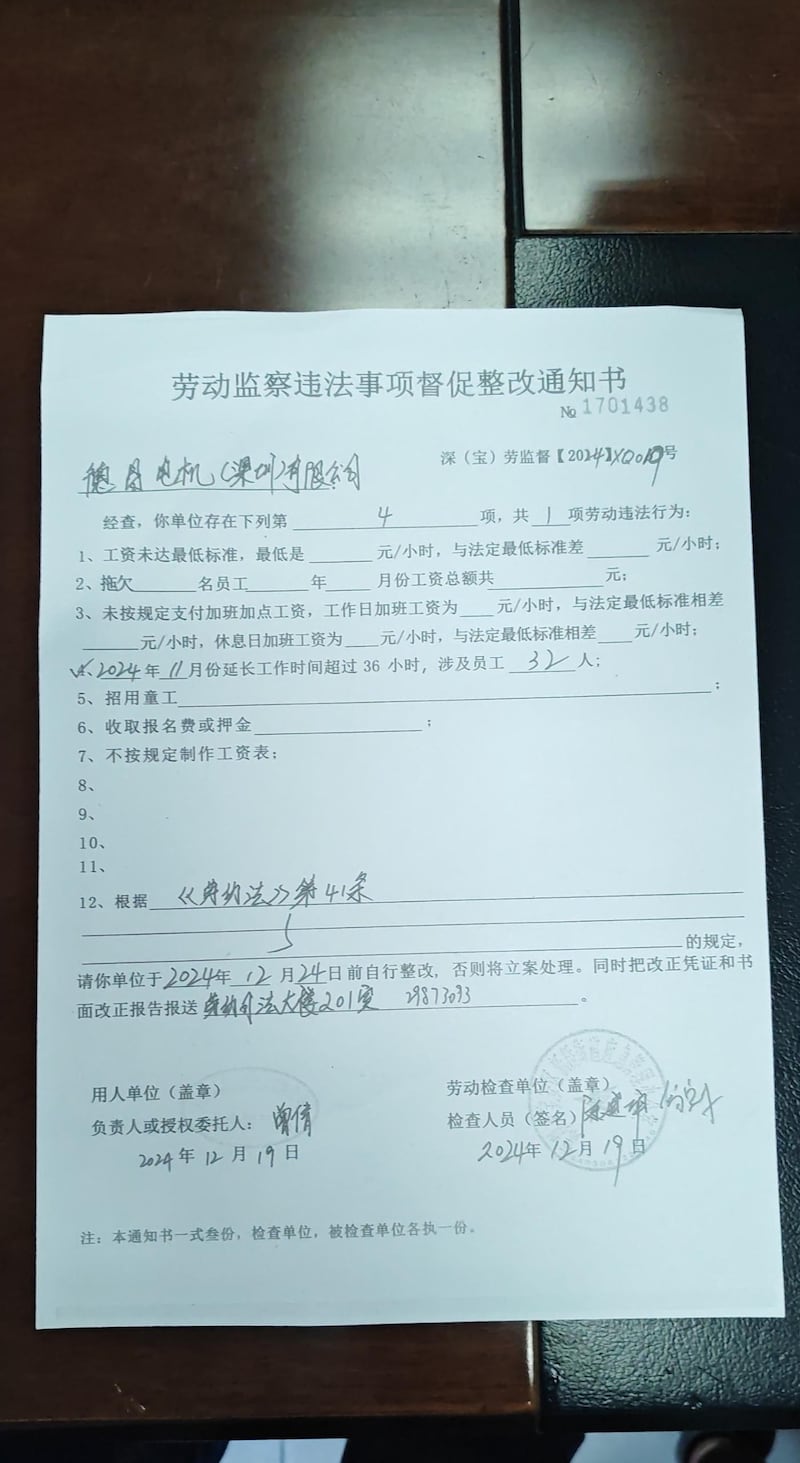 劳动监察违法事项督促整改通知书
№ 1701438
深（宝）劳监督【2024】XQ019号
德昌电机（深圳）有限公司
经查，你单位存在下列第 4 项，共 1 项劳动违法行为：
1、工资未达最低标准，最低是 元/小时，与法定最低标准差 元/小时；
2、拖欠 名员工 年 月份工资总额共 元；
3、未按规定支付加班加点工资，工作日加班工资为 元/小时，与法定最低标准相差
元/小时，休息日加班工资为 元/小时，与法定最低标准相差 元/小时；
✓4、2024年 11月份延长工作时间超过 36 小时，涉及员工 32 人；
5、招用童工 ；
6、收取报名费或押金 ；
7、不按规定制作工资表；
8、
9、
10、
11、
12、根据 《劳动法》第41条
的规定，
请你单位于2024年 12 月24日前自行整改，否则将立案处理。同时把改正凭证和书
面改正报告报送 大楼201室 29873093 。
用人单位（盖章）
负责人或授权委托人：曾倩
2024年 12 月 19 日
劳动检查单位（盖章）
检查人员（签名）
2024年 12月 19日
注：本通知书一式叁份，检查单位，被检查单位各执一份。